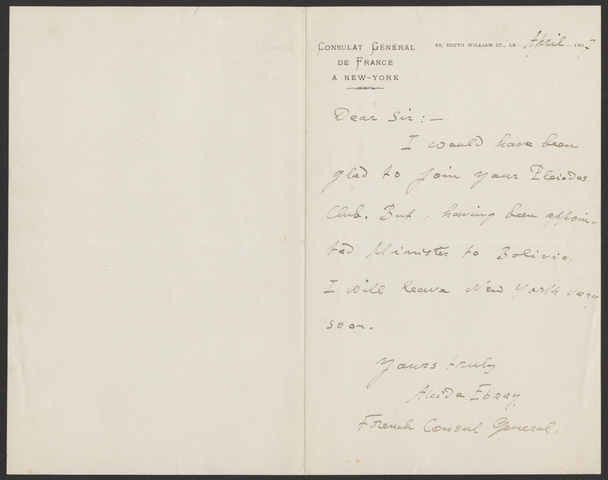 CONSULAT GÉNÉRAL
DE FRANCE
A NEW-YORK
35, SOUTH WILLIAM ST., LE April 190
Dear Sir: —
I would have been
glad to join your Pleiades
Club. But, having been appoin-
ted Minister to Bolivia,
I will leave New York very
soon.
Yours truly
Alcide Ebray
French Consul General.